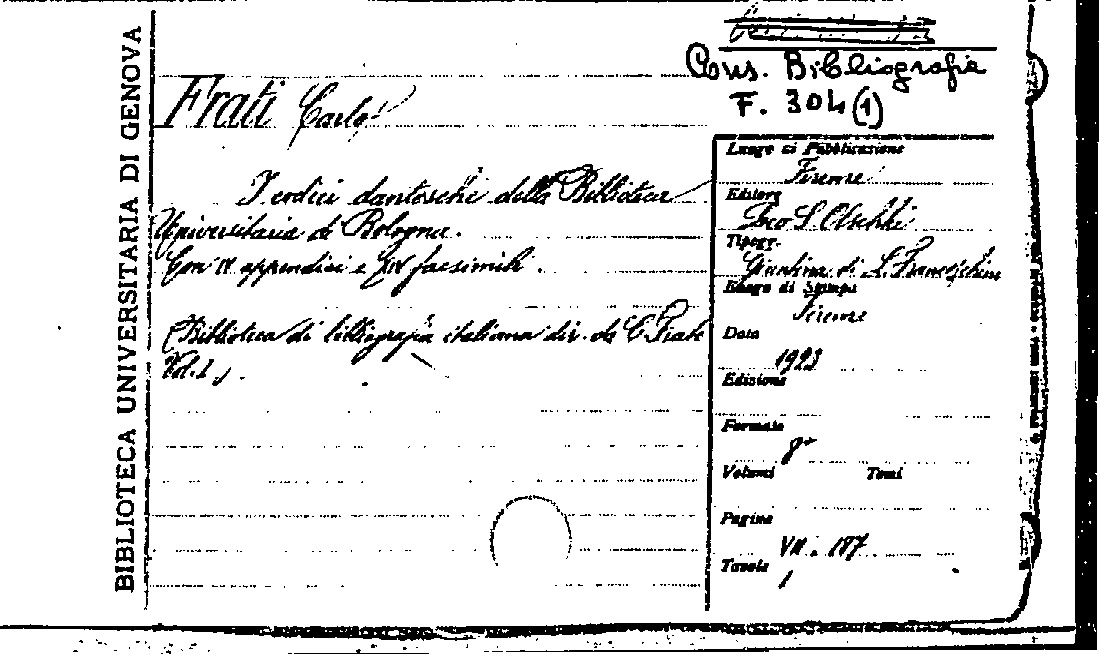 BIBLIOTECA UNIVERSITARIA DI GENOVA
Cons. Bibliografia
F. 304 (1)
Frati Carlo
I codici danteschi della Biblioteca
Universitaria di Bologna.
Con IV appendici e XIV facsimili.
(Biblioteca di bibliografia italiana dir. da C. Frati
Vol. I).
Luogo di Pubblicazione
Firenze
Editore
Leo S. Olschki
Tipogr.
Giuntina di L. Franceschini
Luogo di Stampa
Firenze
Data
1923
Edizione
Formato
8°
Volumi Tomi
Pagine
VII. 187
Tavole